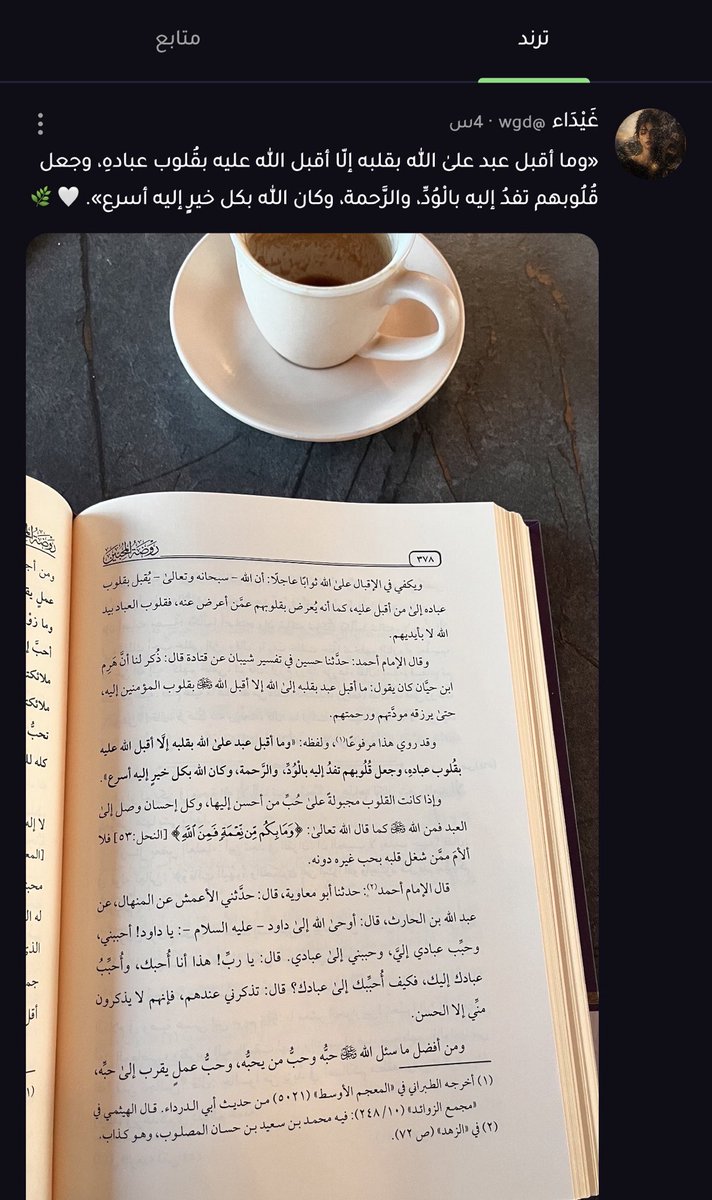 ترند
متابع
غَيْدَاء @wgd · 4س
«وما أقبل عبد علىٰ الله بقلبه إلّا أقبل الله عليه بقُلوب عبادهِ، وجعل
قُلُوبهم تفدُ إليه بالْوُدِّ، والرَّحمة، وكان الله بكل خيرٍ إليه أسرع». 🤍 🌿
روضة المحبين
٣٧٨
ويكفي في الإقبال علىٰ الله ثوابًا عاجلًا: أن الله – سبحانه وتعالىٰ – يُقبل بقلوب
عباده إلىٰ من أقبل عليه، كما أنه يُعرض بقلوبهم عمَّن أعرض عنه، فقلوب العباد بيد
الله لا بأيديهم.
وقال الإمام أحمد: حدَّثنا حسين في تفسير شيبان عن قتادة قال: ذُكر لنا أنَّ هَرِم
ابن حيَّان كان يقول: ما أقبل عبد بقلبه إلىٰ الله إلا أقبل الله ﷻ بقلوب المؤمنين إليه،
حتىٰ يرزقه مودَّتهم ورحمتهم.
وقد روي هذا مرفوعًا(١)، ولفظه: «وما أقبل عبد علىٰ الله بقلبه إلَّا أقبل الله عليه
بقُلوب عبادهِ، وجعل قُلُوبهم تفدُ إليه بالْوُدِّ، والرَّحمة، وكان الله بكل خيرٍ إليه أسرع».
وإذا كانت القلوب مجبولةً علىٰ حُبِّ من أحسن إليها، وكل إحسان وصل إلىٰ
العبد فمن الله ﷻ كما قال الله تعالىٰ: ﴿وَمَا بِكُم مِّن نِّعْمَةٍ فَمِنَ ٱللَّهِ﴾ [النحل: ٥٣] فلا
ألأمَ ممَّن شغل قلبه بحب غيره دونه.
قال الإمام أحمد(٢): حدثنا أبو معاوية، قال: حدَّثني الأعمش عن المنهال، عن
عبد الله بن الحارث، قال: أوحىٰ الله إلىٰ داود – عليه السلام –: يا داود! أحببني،
وحبِّب عبادي إليَّ، وحببني إلىٰ عبادي. قال: يا ربِّ! هذا أنا أُحبك، وأُحبِّبُ
عبادك إليك، فكيف أُحبِّبك إلىٰ عبادك؟ قال: تذكرني عندهم، فإنهم لا يذكرون
منِّي إلا الحسن.
ومن أفضل ما سئل الله ﷻ حبُّه وحبُّ من يحبُّه، وحبُّ عملٍ يقرب إلىٰ حبِّه،
(١) أخرجه الطبراني في «المعجم الأوسط» (٥٠٢١) من حديث أبي الدرداء. قال الهيثمي في
«مجمع الزوائد» (٢٤٨/١٠): فيه محمد بن سعيد بن حسان المصلوب، وهو كذاب.
(٢) في «الزهد» (ص ٧٢).